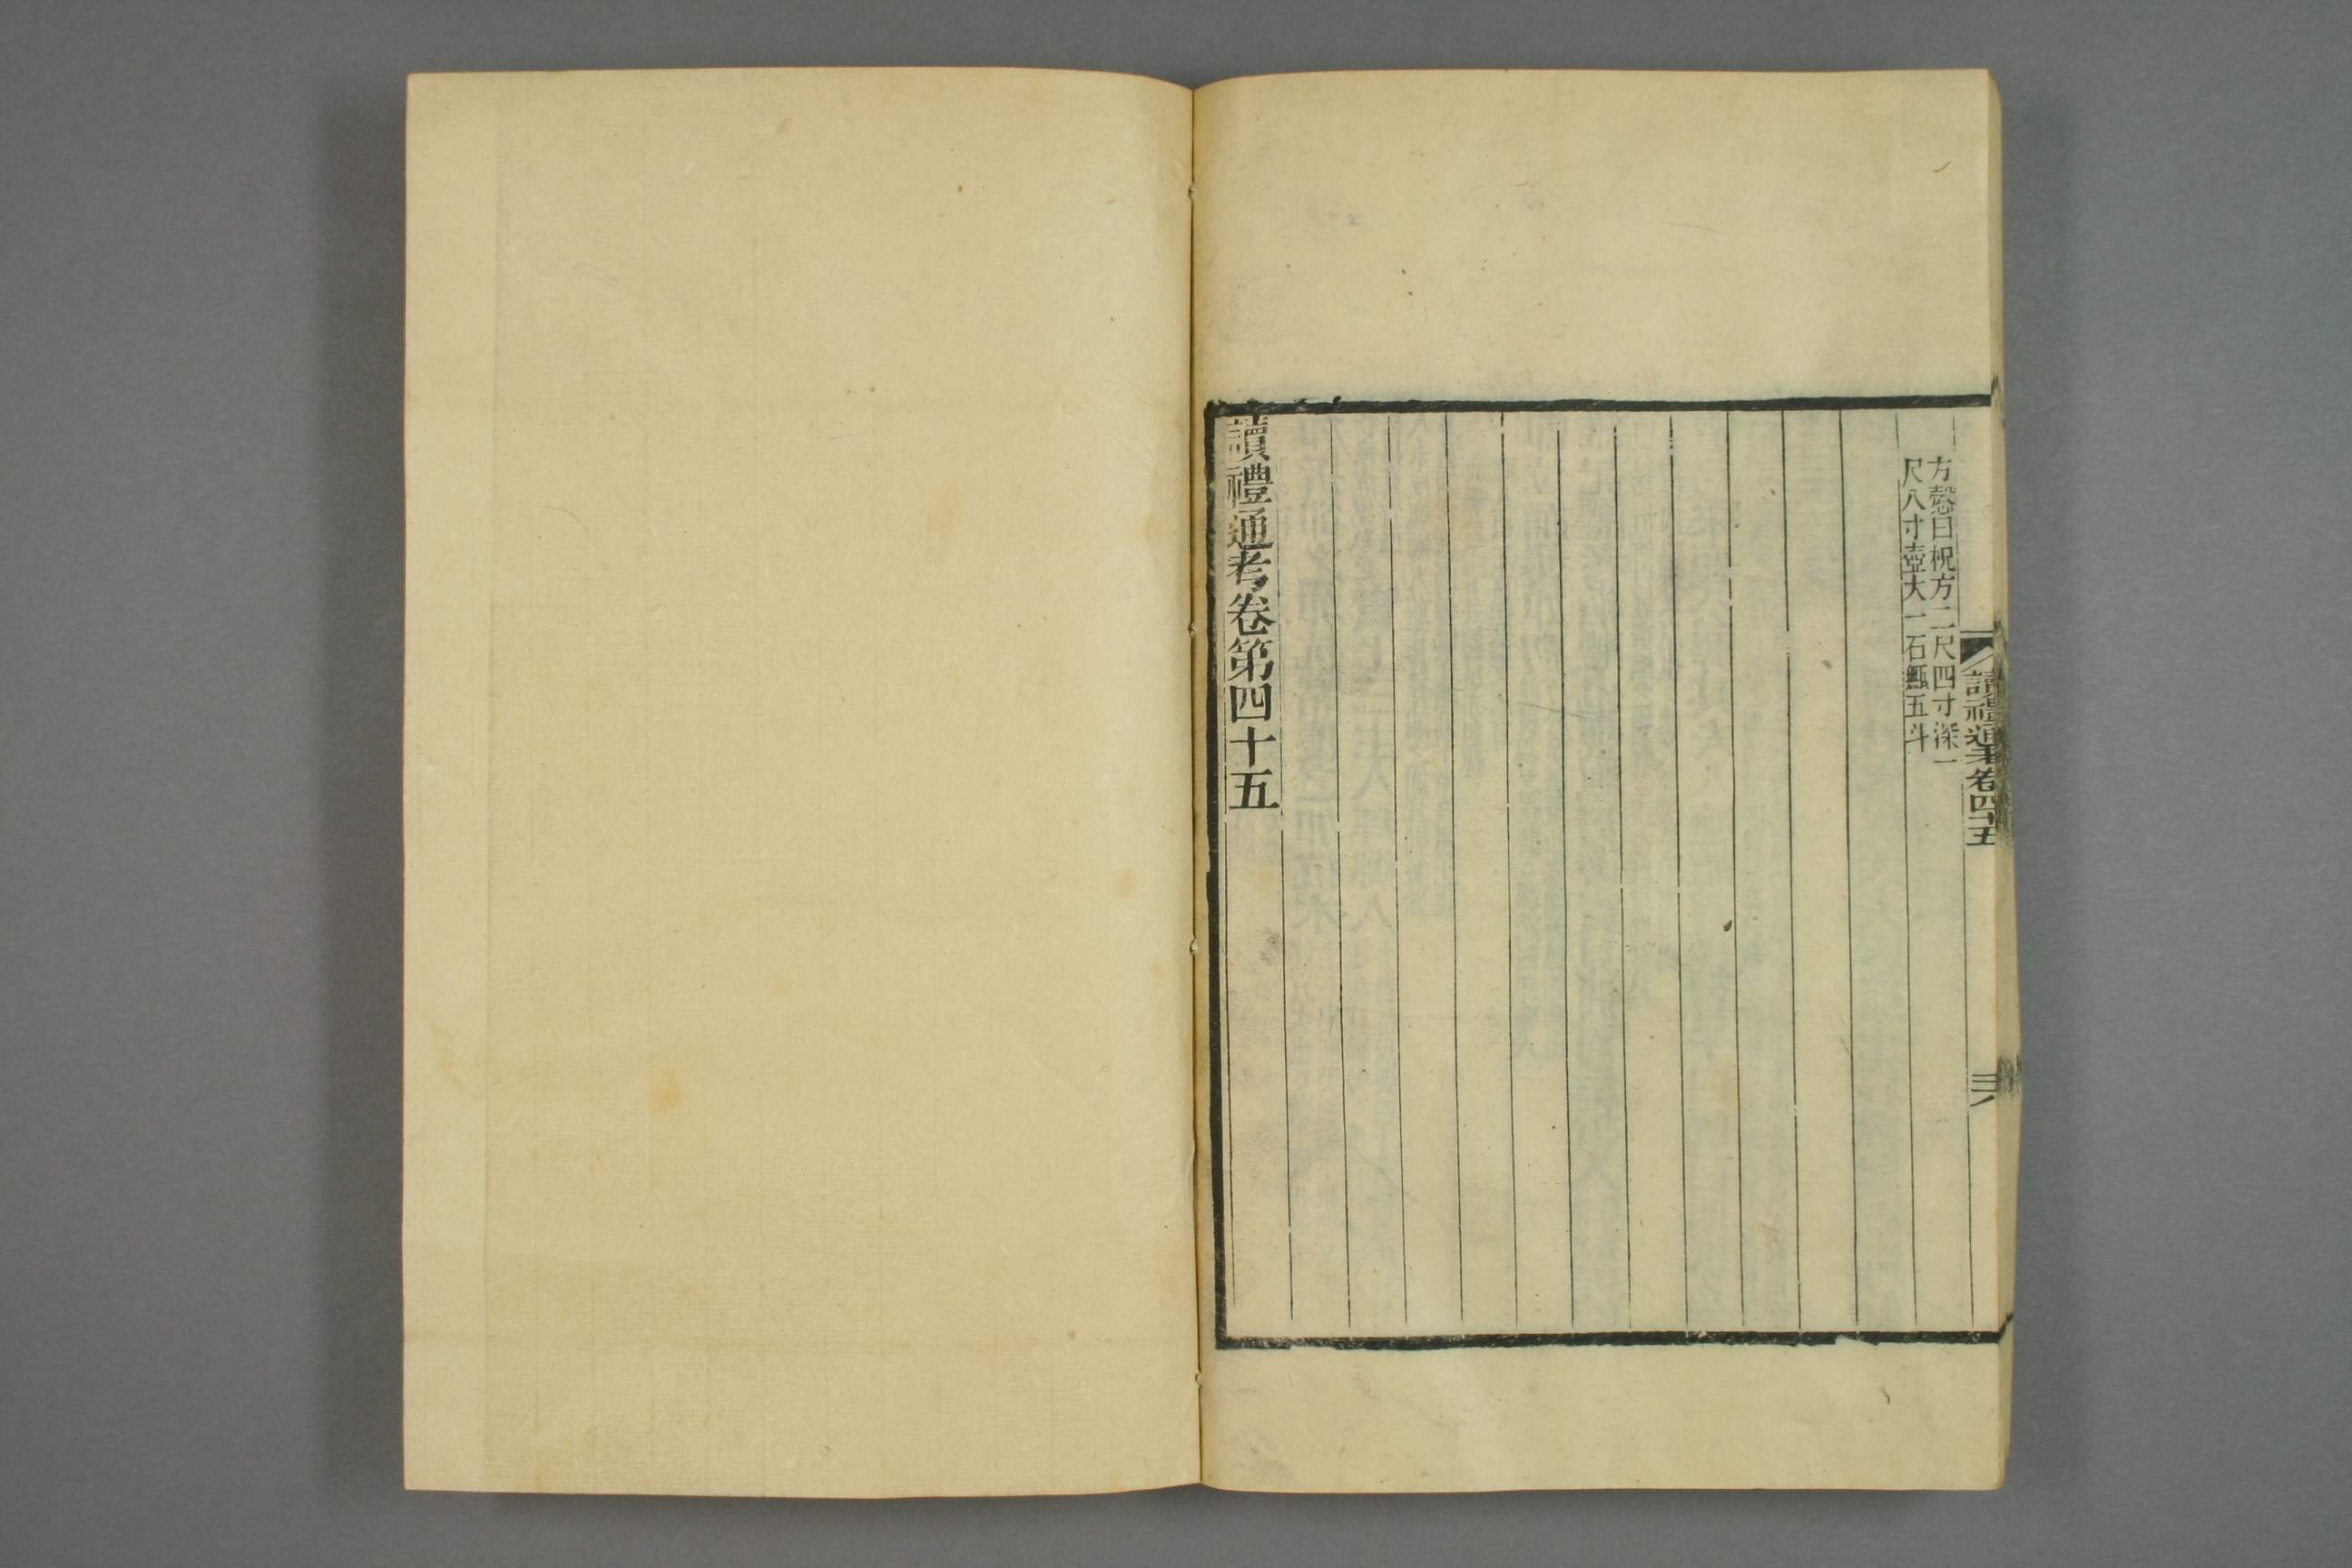 方慤曰柷方二尺四寸深一
尺八寸壺大一石甒五斗
讀禮通考卷第四十五
讀禮通考卷四十五
三八